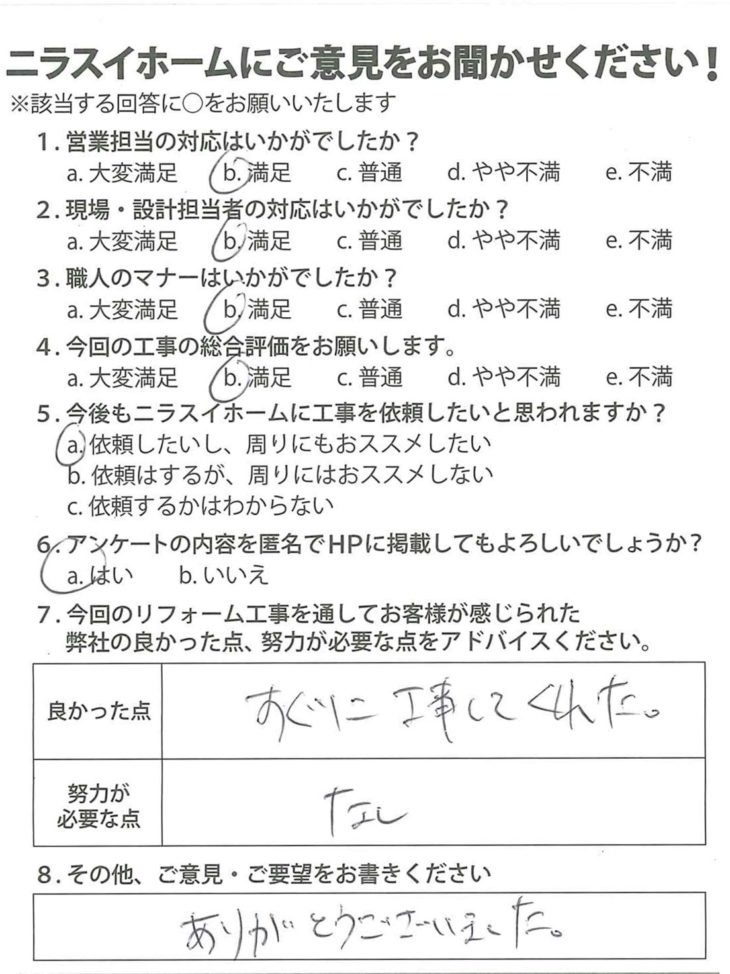 ニラスイホームにご意見をお聞かせください！
※該当する回答に○をお願いいたします
1．営業担当の対応はいかがでしたか？
a. 大変満足 b. 満足 c. 普通 d. やや不満 e. 不満
2．現場・設計担当者の対応はいかがでしたか？
a. 大変満足 b. 満足 c. 普通 d. やや不満 e. 不満
3．職人のマナーはいかがでしたか？
a. 大変満足 b. 満足 c. 普通 d. やや不満 e. 不満
4．今回の工事の総合評価をお願いします。
a. 大変満足 b. 満足 c. 普通 d. やや不満 e. 不満
5．今後もニラスイホームに工事を依頼したいと思われますか？
a. 依頼したいし、周りにもおススメしたい
b. 依頼はするが、周りにはおススメしない
c. 依頼するかはわからない
6．アンケートの内容を匿名でHPに掲載してもよろしいでしょうか？
a. はい b. いいえ
7．今回のリフォーム工事を通してお客様が感じられた
弊社の良かった点、努力が必要な点をアドバイスください。
良かった点 すぐに工事してくれた。
努力が
必要な点 なし
8．その他、ご意見・ご要望をお書きください
ありがとうございました。